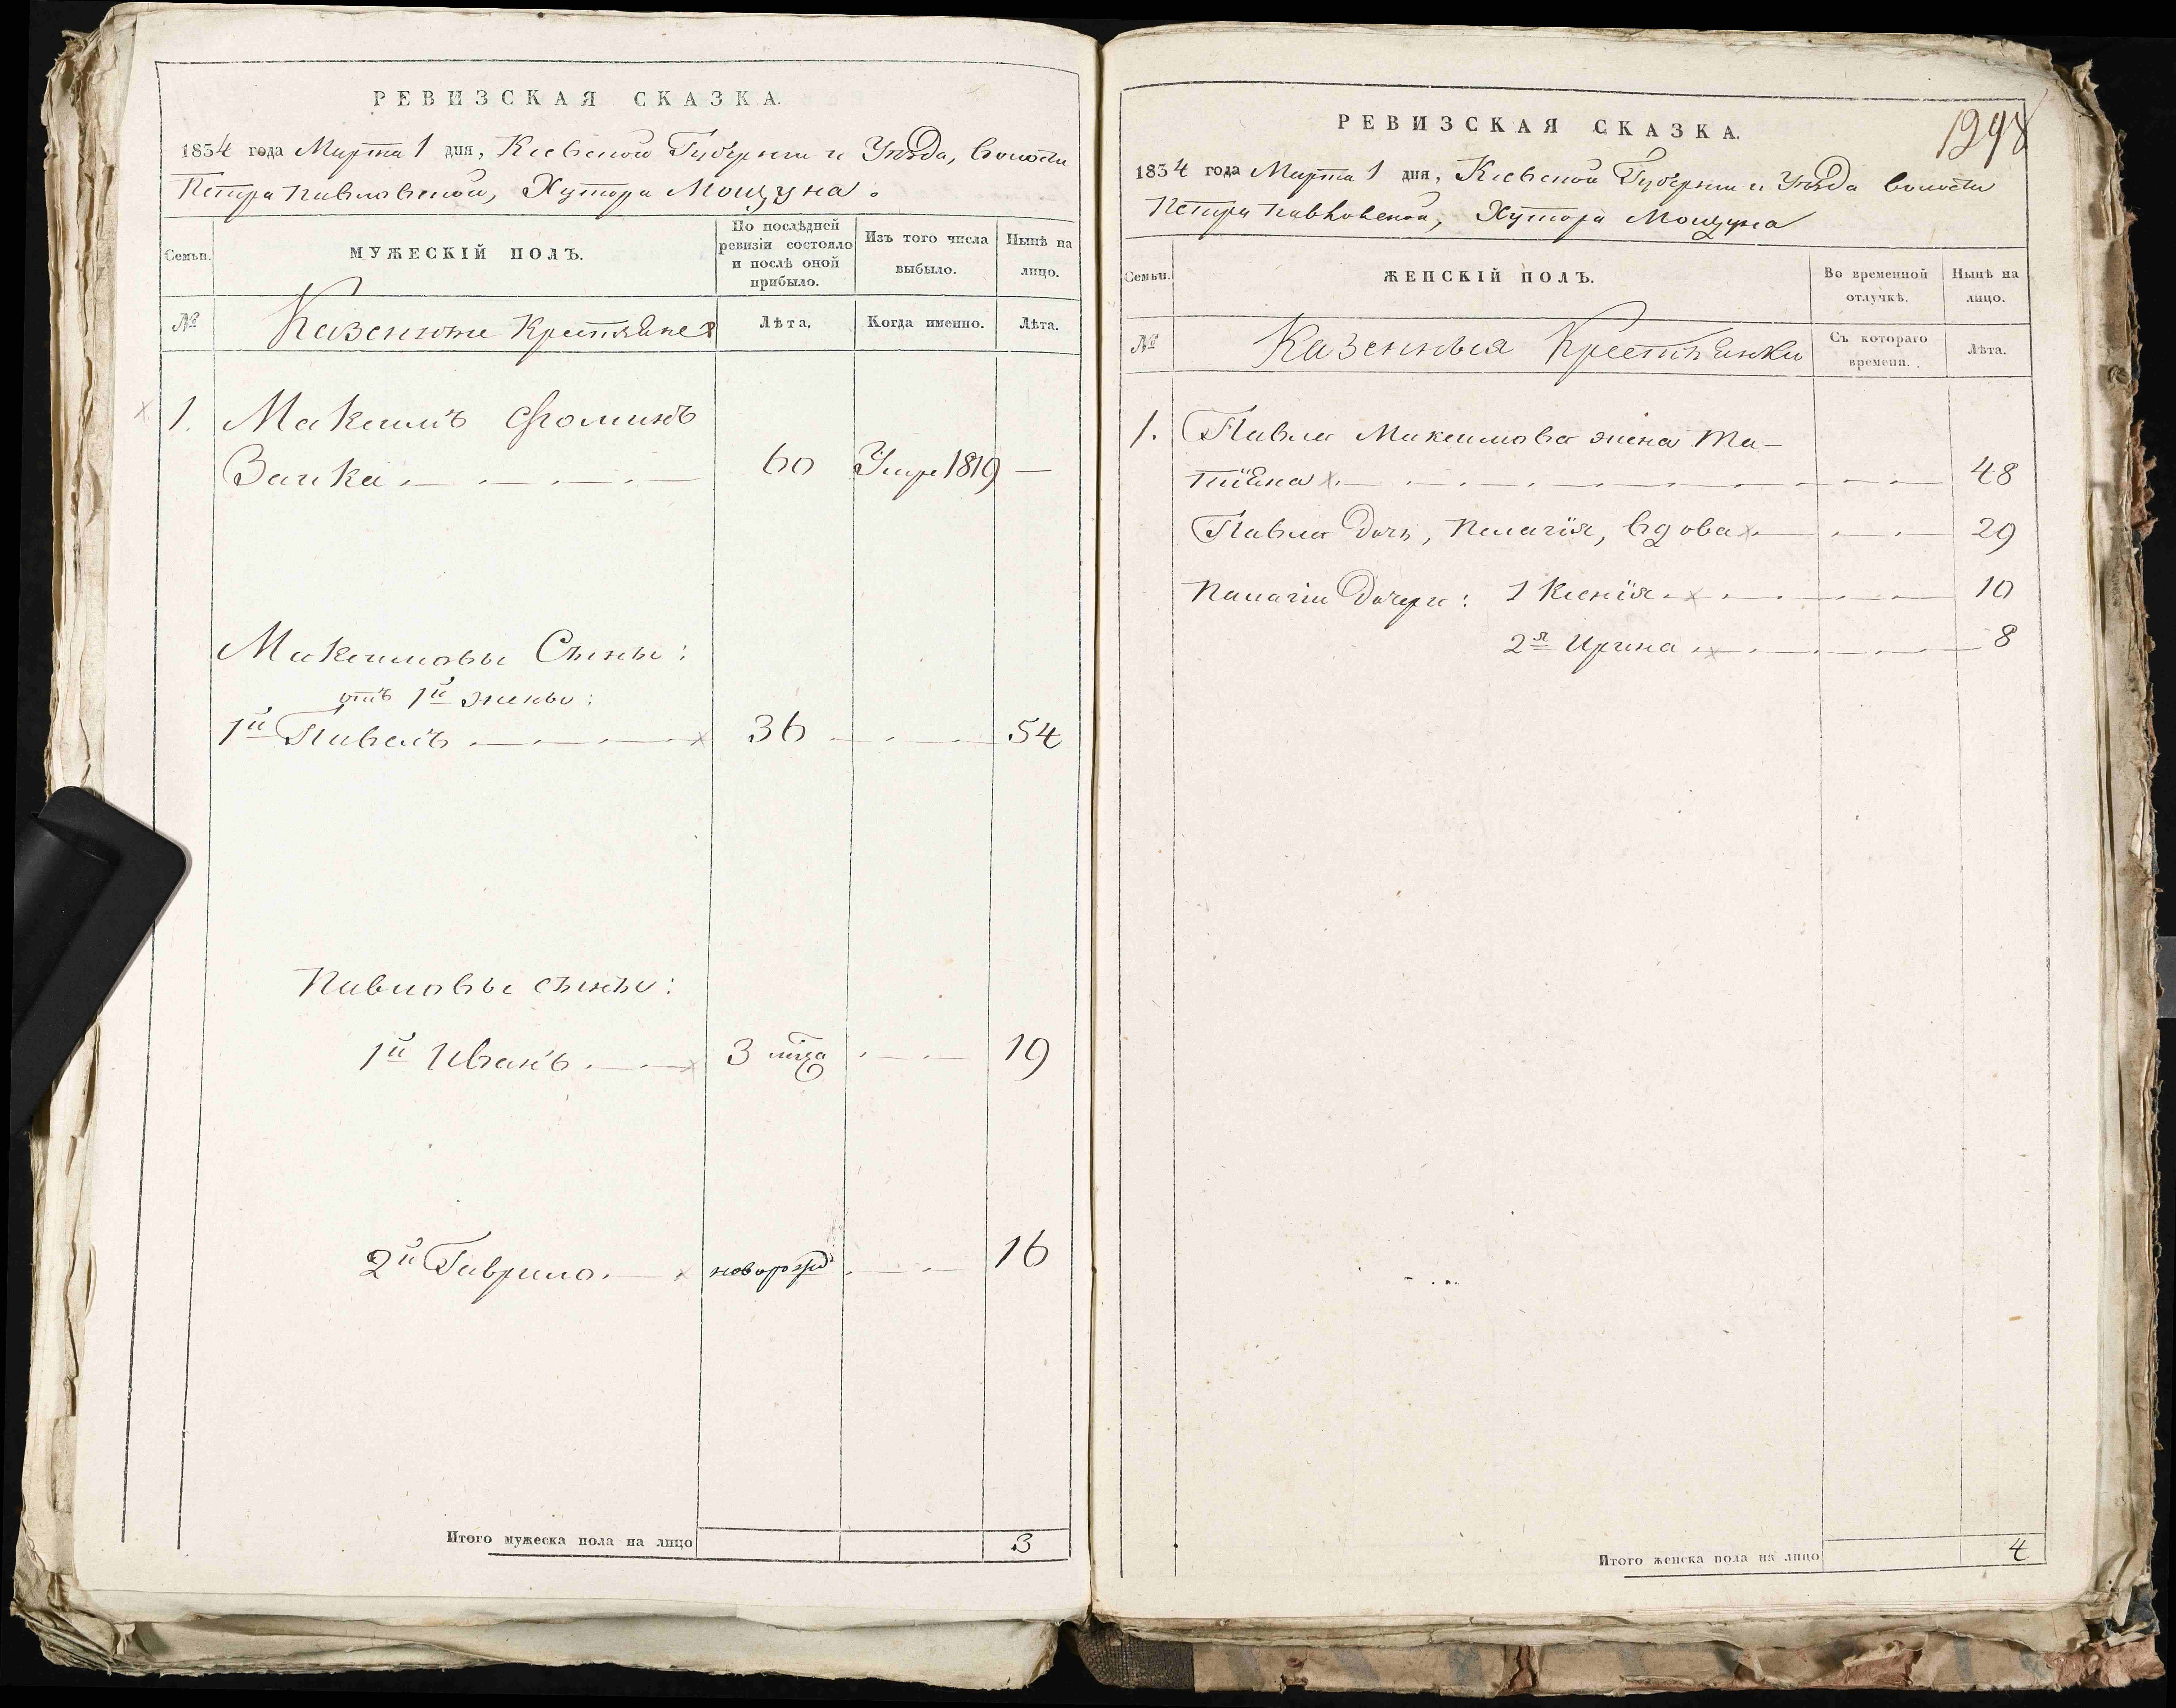 РЕВИЗСКАЯ СКАЗКА.
1834 года Марта 1 дня, Кіевской Губерніи и Уѣзда, волости
Петропавловской, Хутора Мощуна.
Семьи.
МУЖЕСКІЙ ПОЛЪ.
По послѣдней ревизіи состояло и послѣ оной прибыло.
Изъ того числа выбыло.
Нынѣ на лицо.
№
Казенные Крестьяне
Лѣта.
Когда именно.
Лѣта.
1. Максимъ Фоминъ
Заика 60 Умре 1819 —
Максимовы Сыны:
отъ 1й жены:
1й Павелъ 36 54
Павловы сыны:
1й Иванъ 3 мца 19
2й Гаврило новорожд 16
Итого мужеска пола на лицо 3
1298
РЕВИЗСКАЯ СКАЗКА.
1834 года Марта 1 дня, Кіевской Губерніи и Уѣзда волости
Петропавловской, Хутора Мощуна
Семьи.
ЖЕНСКІЙ ПОЛЪ.
Во временной отлучкѣ.
Нынѣ на лицо.
№
Казенныя Крестьянки
Съ котораго времени.
Лѣта.
1. Павла Максимова жена Та-
тіяна 48
Павла дочь, Пелагія, вдова 29
Палагіи дочери: 1 Ксенія 10
2я Ирина 8
Итого женска пола на лицо 4